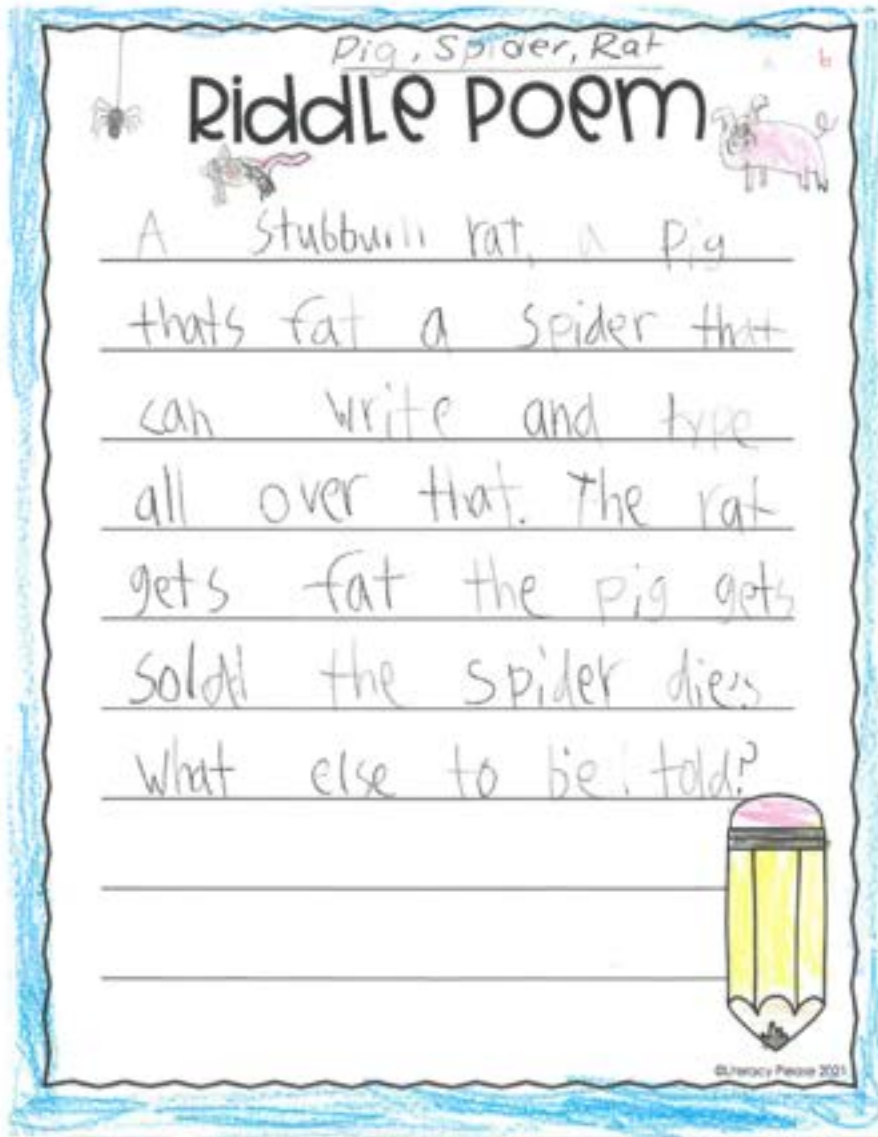 Pig, Spider, Rat
b
Riddle Poem
A stubburn rat, a pig
thats fat a spider that
can write and type
all over that. The rat
gets fat the pig gets
sold the spider dies
What else to be told?
©Literacy Please 2021